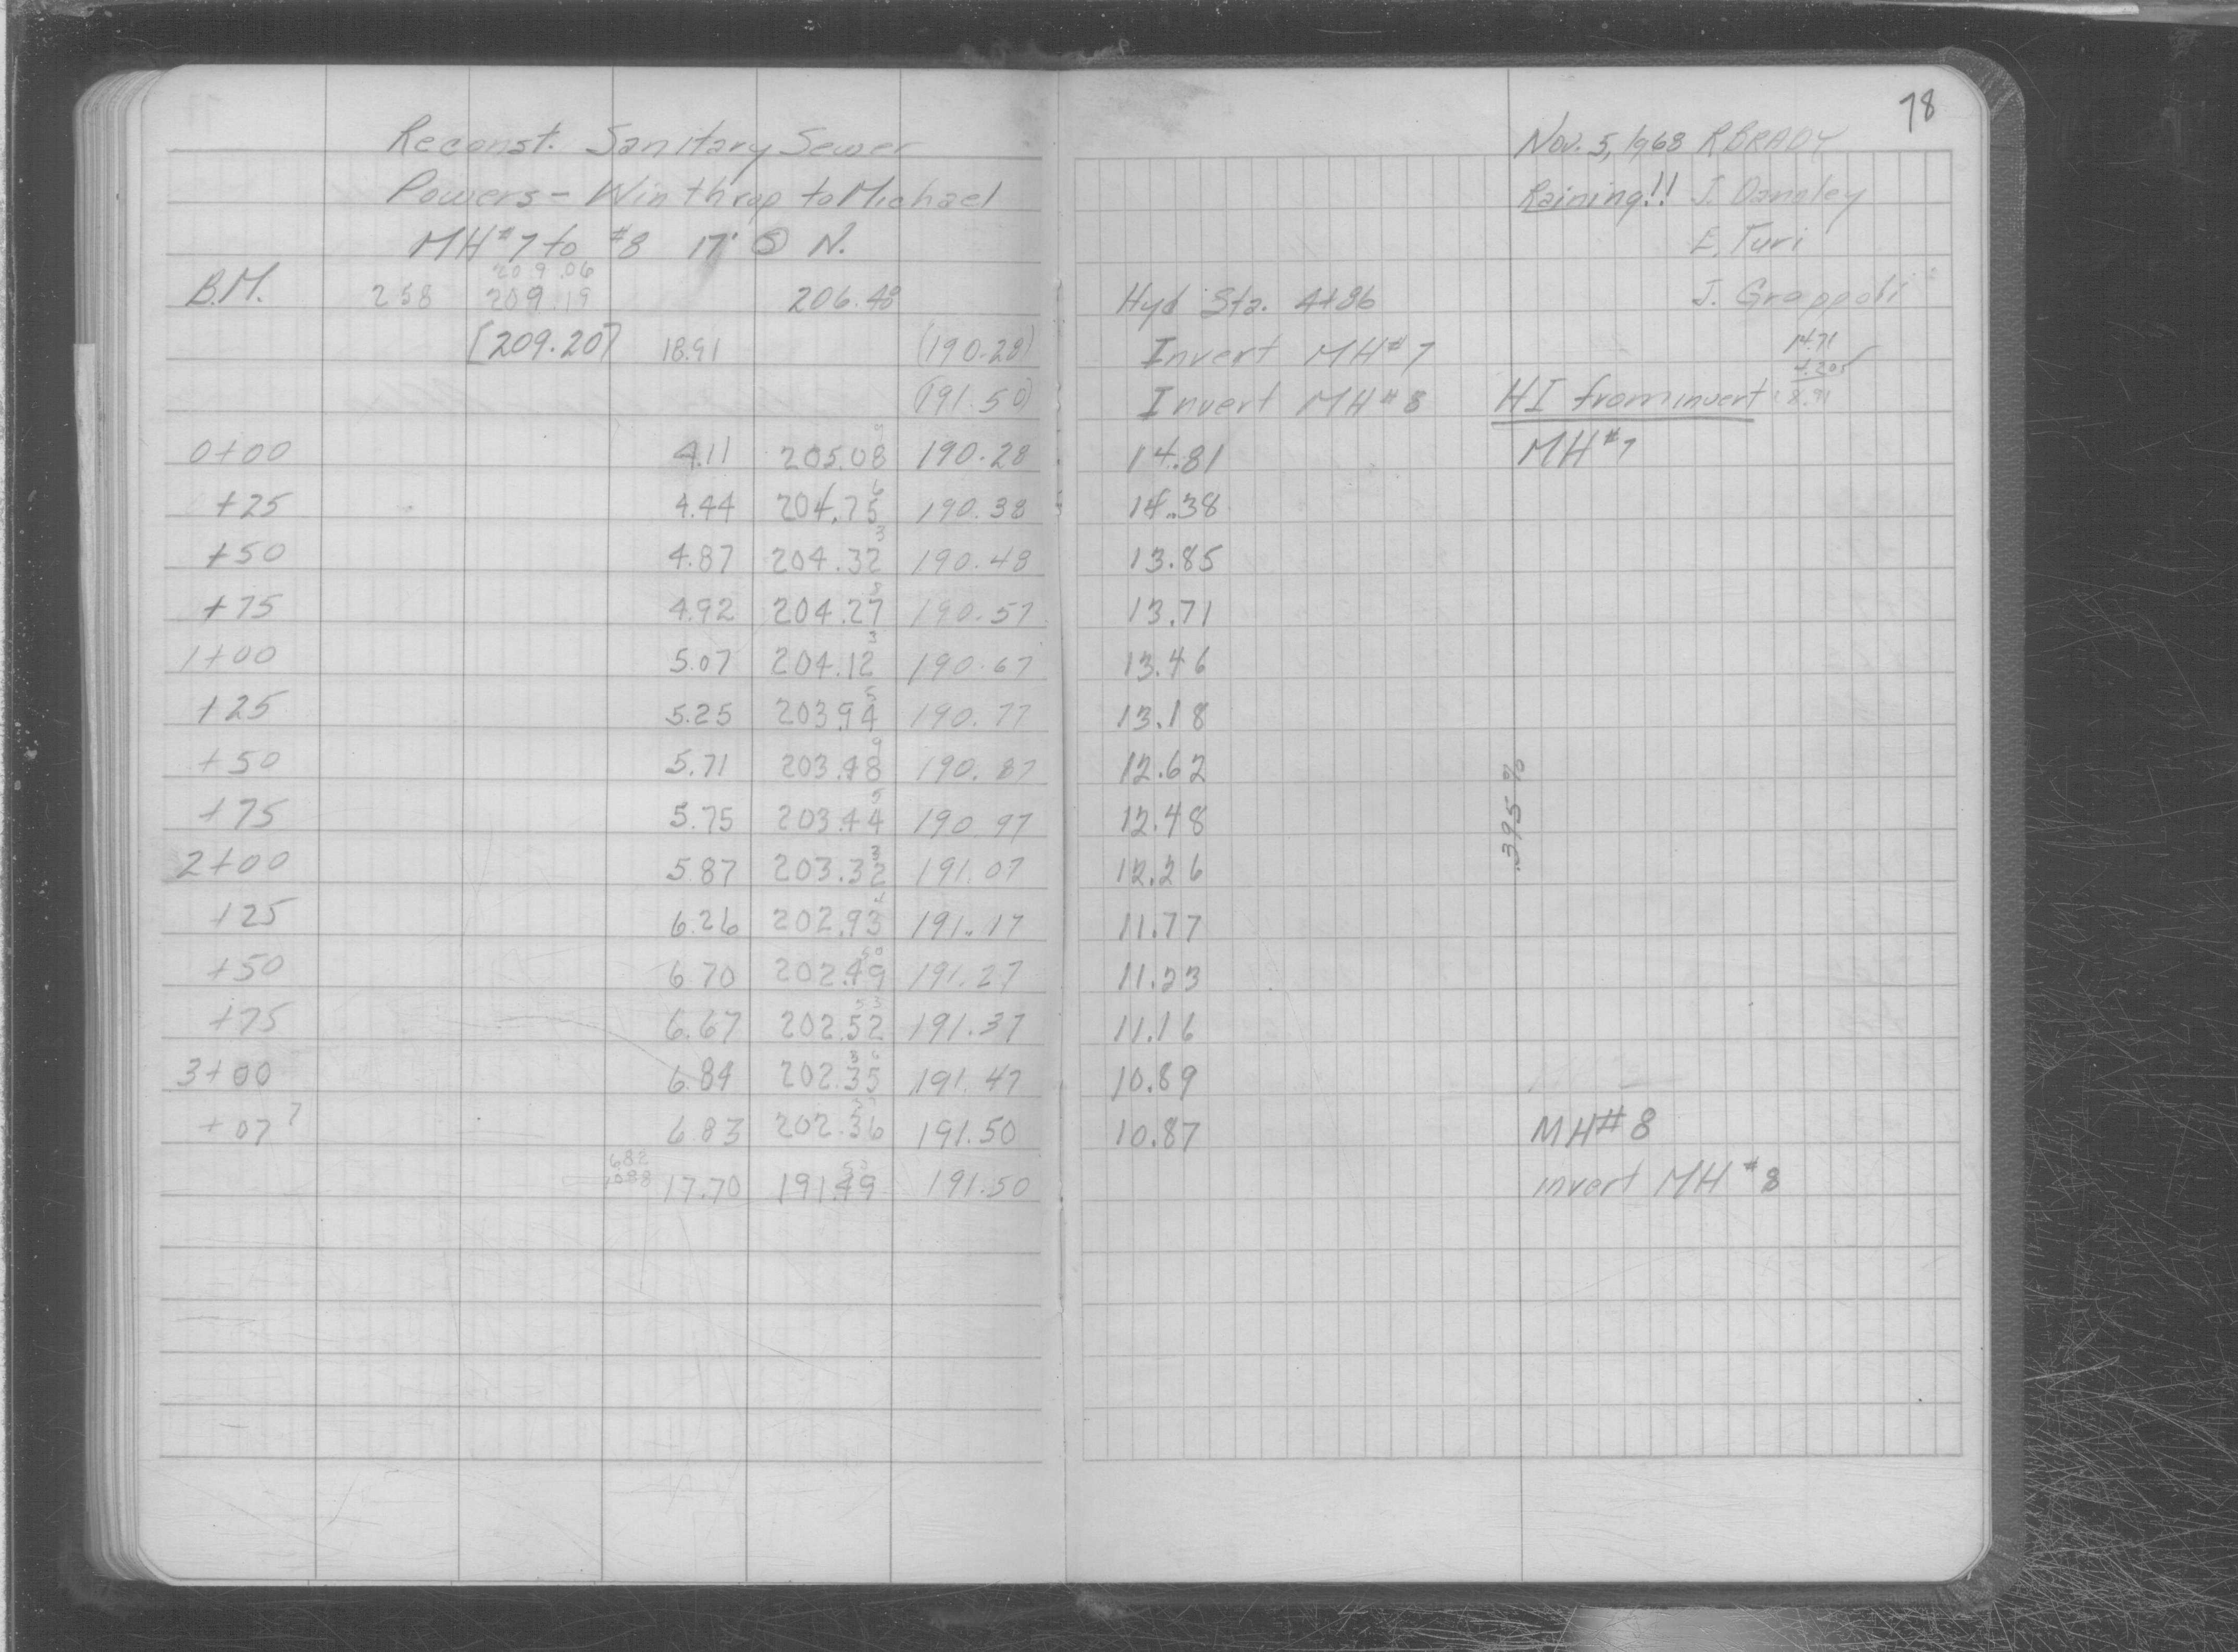 78
Reconst. Sanitary Sewer
Powers - Winthrop to Michael
MH #7 to #8 17' (S) N.
209.06
B.M. 258 209.19 206.48
[209.20] 18.91 (190.28)
(191.50)
0+00 4.11 205.08 190.28
+25 4.44 204.75 190.38
+50 4.87 204.32 190.48
+75 4.92 204.27 190.57
1+00 5.07 204.12 190.67
+25 5.25 203.94 190.77
+50 5.71 203.48 190.87
+75 5.75 203.44 190.97
2+00 5.87 203.32 191.07
+25 6.26 202.93 191.17
+50 6.70 202.49 191.27
+75 6.67 202.52 191.37
3+00 6.84 202.35 191.47
+07 7 6.83 202.36 191.50
6.82
17.70 191.49 191.50
Nov. 5, 1968 R BRADY
Raining!! J. Dangley
E. Turi
Hyd Sta. 4+86 J. Grappoli
Invert MH #7 14.71
Invert MH #8 HI from invert 18.91
14.81 MH #7
14.38
13.85
13.71
13.46
13.18
12.62
12.48
.395 %
12.26
11.77
11.23
11.16
10.89
10.87 MH #8
invert MH #8